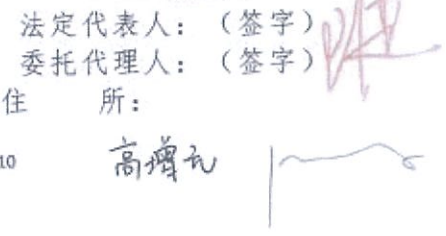 法定代表人：（签字）
委托代理人：（签字）
住 所：
10 高增礼